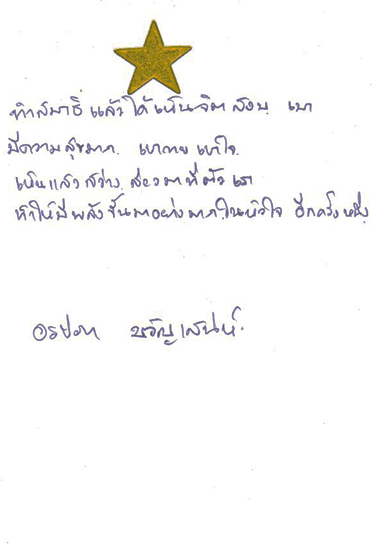 ทำสมาธิ แล้ว ได้ เห็นจิต สงบ เบา
มีความสุขมาก เบากาย เบาใจ
เห็นแสง สว่าง ส่องมาที่ตัวเรา
ทำให้มี พลังขึ้นมาอย่างมากในหัวใจ อีกครั้งหนึ่ง
ขวัญเสน่ห์